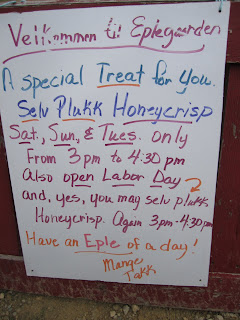 Velkommen til Eplegaarden
A special Treat for you.
Selv Plukk Honeycrisp
Sat., Sun, & Tues. only
From 3pm to 4:30 pm
Also open Labor Day
and, yes, you may selv plukk
Honeycrisp. Again 3pm-4:30pm
Have an Eple of a day!
Mange
Takk